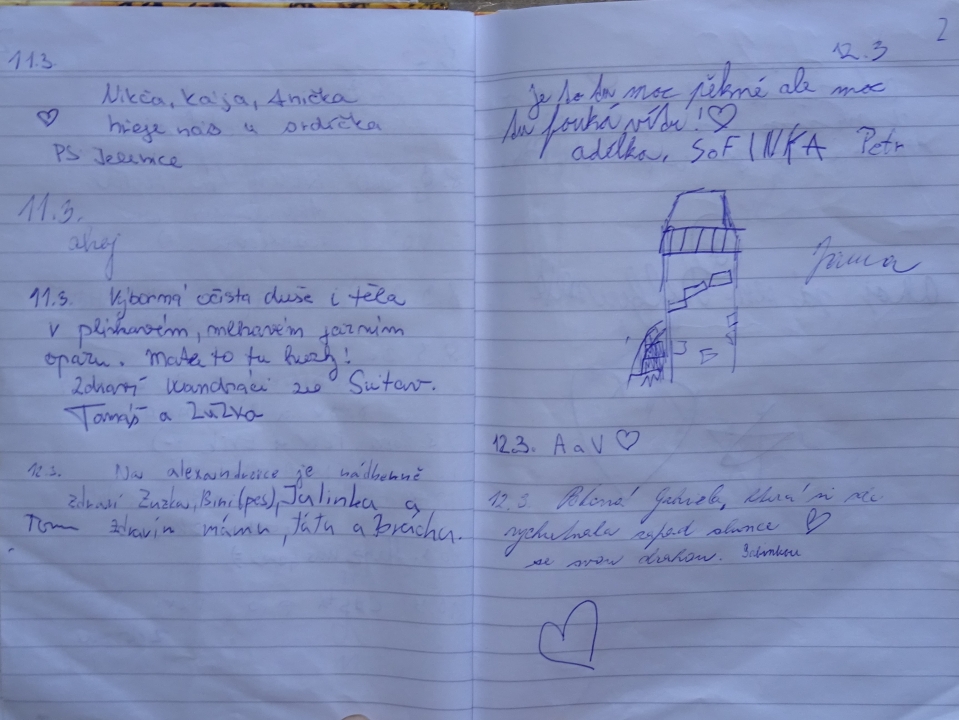 11.3.
Nikča, Kája, Anička
hřeje nás u srdíčka
PS Jelenice
11.3.
ahoj
11.3. Výborná očista duše i těla
v plískavém, mlhavém jarním
oparu. Mate to tu hezky!
Zdraví Vandráci ze Svitav.
Tomáš a Zuzka
12.3. Na alexandrovce je nádherně
zdraví Zuzka, Bini (pes), Julinka a
Tom zdravím mámu, tátu a bráchu.
2
12.3
je to tu moc pěkné ale moc
tu fouká vítr!
adélka, SOFINKA Petr
Jana
12.3. A a V
12.3. Gabriela, která si
vychutnala západ slunce
se svou drahou.